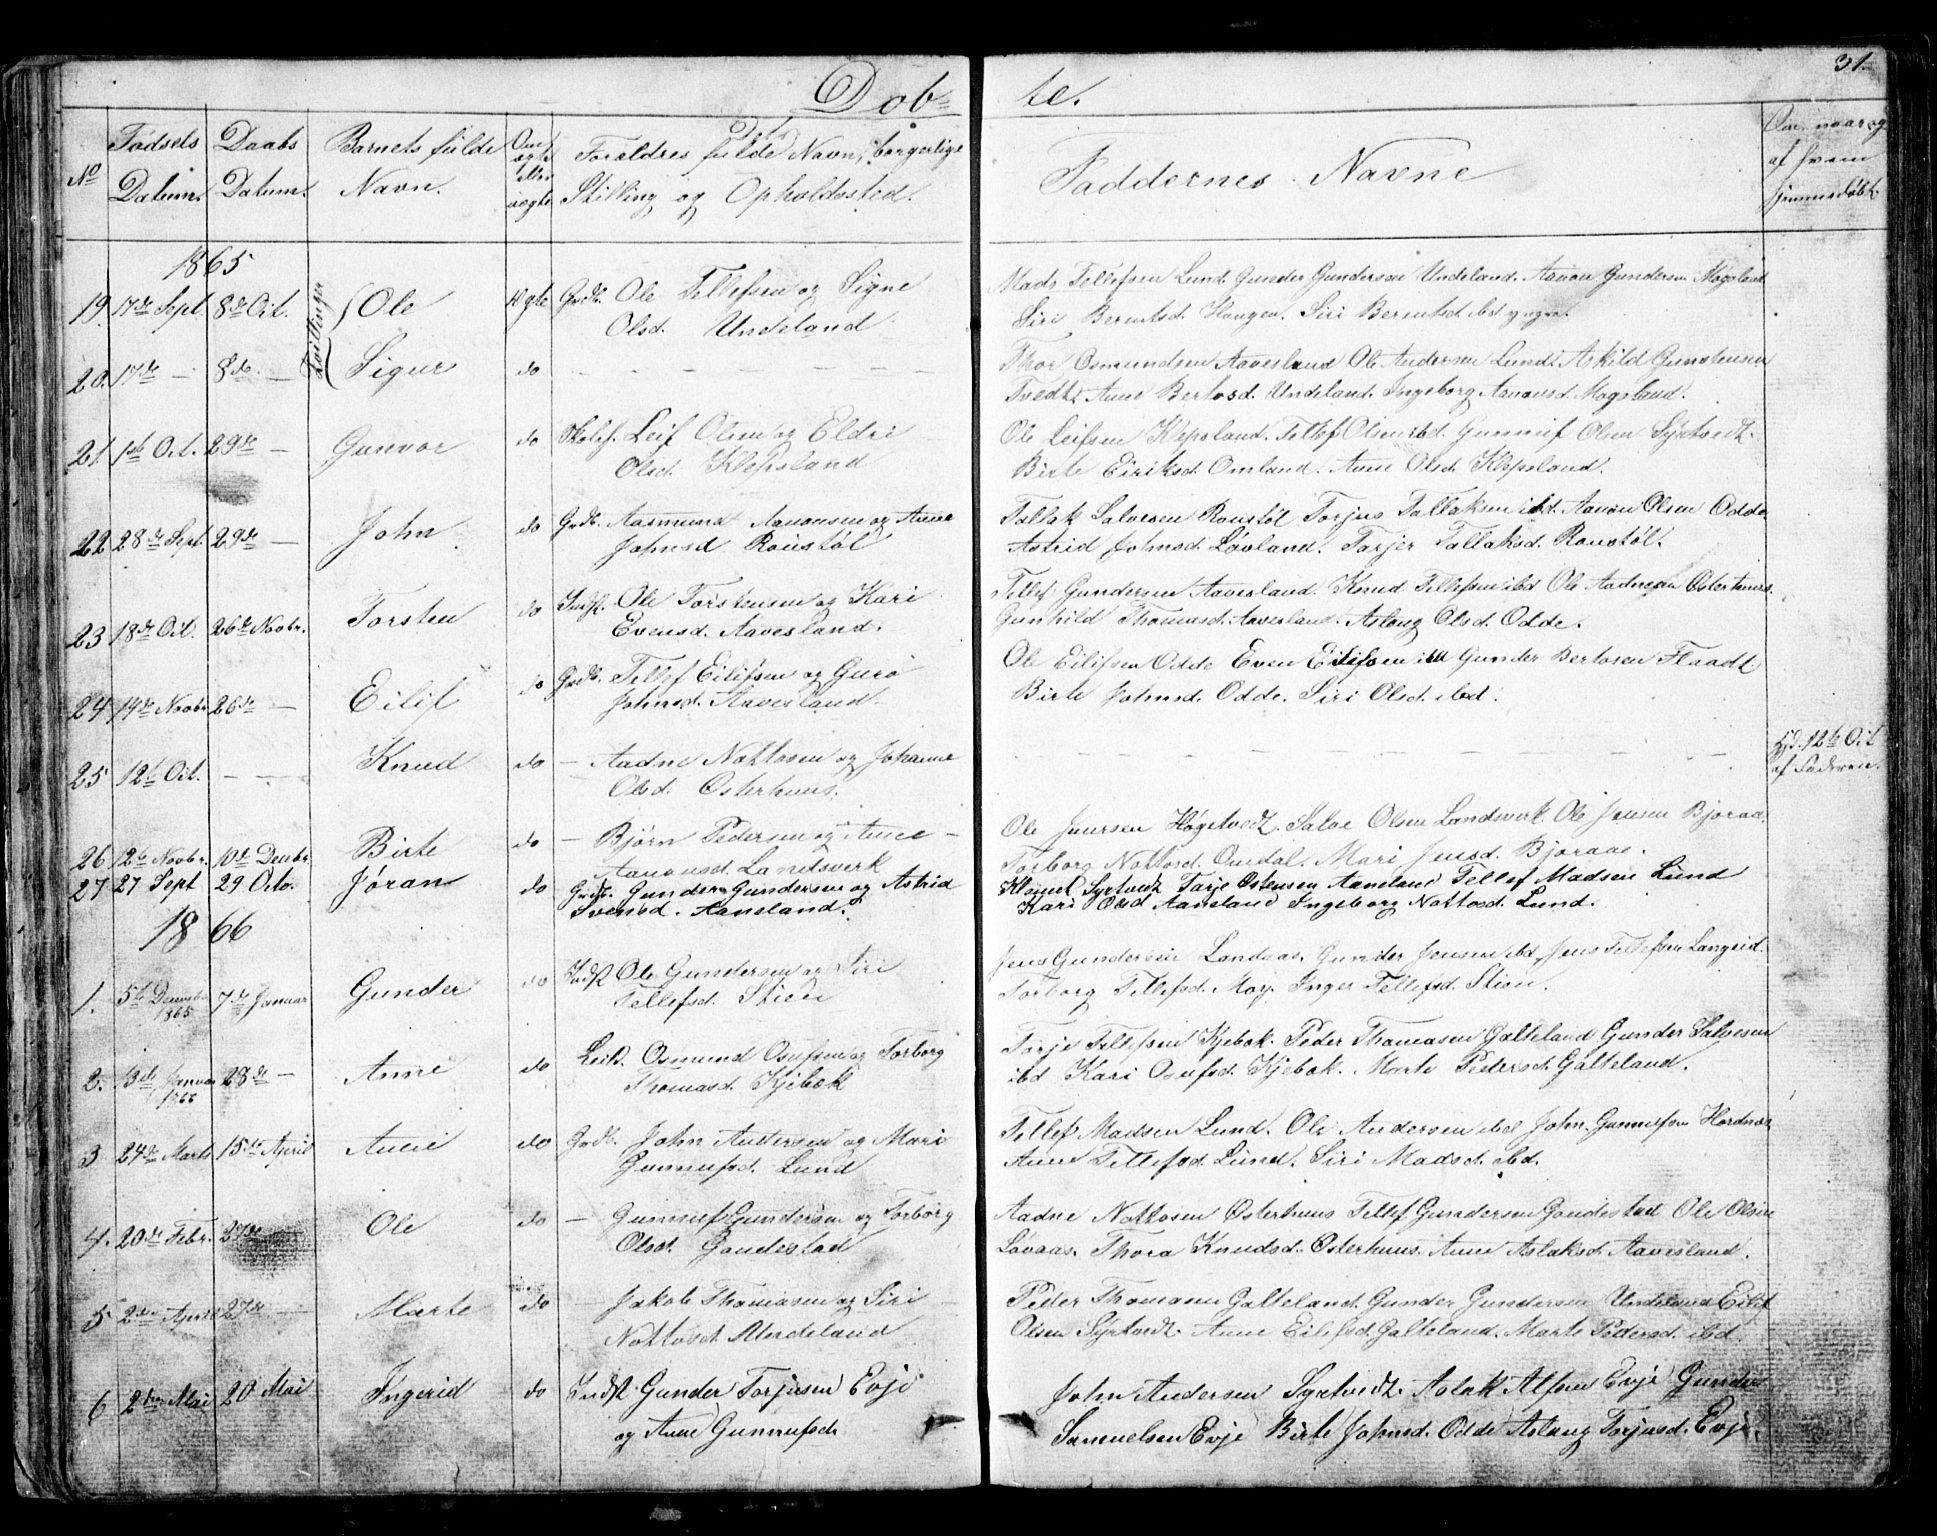 31.
Døb- te.
No
Fødsels Datum.
Daabs Datum.
Barnets fulde Navn.
Om ægte eller uægte
Forældres fulde Navn, borgerlige
Stilling og Opholdssted.
Faddernes Navne
Om, naar og
af hvem
hjemmedøbt.
1865
Tvillinger
19. 17de Sept. 8de Oct. Ole Ægte Grdb. Ole Tellefsen og Signe
Olsd. Undeland
Mads Tellefsen Lund. Gunder Gundersen Undeland. Aanon Gundersen Mogsland
Siri Berentsd. Haugen. Siri Berentsd. ibd yngre.
20. 17de — 8de — Sigur do — — — — — —
Thor Osmundsen Aavesland Ole Andersen Lund. Askild Gunstensen
Tvedt. Anne Bertosd. Undeland. Ingeborg Aanonsd. Mogsland.
21. 1ste Oct. 29de — Gunvor do Skolef. Leif Olsen og Eldri
Olsd. Klepsland
Ole Leifsen Klepsland. Tellef Olsen ibd. Gunnuf Olsen Syrtvedt.
Birte Eiriksd. Omland. Anne Olsd. Klepsland.
22 28de Sept 29de — John. do Grdb. Aasmund Aanonsen og Anne
Johnsd Roustøl
Tallak Salvesen Roustøl Torjus Tallaksen ibd. Aanon Olsen Odde.
Astrid Johnsd. Løvland. Tarjer Tallaksd. Roustøl.
23 18de Oct. 26de Novbr. Torsten do Indst. Ole Torstensen og Kari
Evensd. Aavesland.
Tellef Gundersen Aavesland. Knud Tellefsen ibd Ole Aadnesen Osterhuus.
Gunhild Thomasd. Aavesland. Aslaug Olsd. Odde.
24 19de Novbr 26de — Eilif do Grdb. Tellef Eilifsen og Guro
Johnsd. Aavesland.
Ole Eilifsen Odde Even Eilifsen ibd Gunder Bertosen Flaadt
Birte Johnsd. Odde. Siri Olsd. ibd.
25 12te Oct. — — Knud do — Aadne Nottosen og Johanne
Olsd. Osterhuus.
— — — — — — —
Hjd. 12te Oct
af Faderen.
26 12te Novbr. 10de Decbr. Birte do — Bjørn Pedersen og Anne —
Aanonsd. Landsverk
Ole Jensen Høgetvedt. Salve Olsen Landsverk. Ole Jensen Bjoraa.
Torborg Nottosd. Omdal. Mari Jensd. Bjoraae.
27 27 Sept 29 Octo. Jøran do Grdb. Gunder Gundersen og Astrid
Svensd. Aaneland.
Syrtvedt Tarje Ostensen Aaneland Tellef Madsen Lund
Kari Olsd Aaneland Ingeborg Nottosd. Lund.
1866
1. 5te Decembr 1865 7de Januar Gunder do Indst Ole Gundersen og Siri
Tellefsd. Stien
Jens Gundersen Landaas. Gunder Jensen ibd Jens Tellefsen Langeid.
Torborg Tellefsd. Moy. Inger Tellefsd. Stien.
2. 3die Januar 1866 28de — Anne do Leil. Osmund Osufsen og Torborg
Thomasd. Kjebæk
Torje Tellefsen Kjebæk. Peder Thomasen Galteland Gunder Salvesen
ibd Kari Osufsd. Kjebæk. Marte Pedersd. Galteland.
3 24de Marts 15de April Anne do Grdb. John Andersen og Mari
Gunnufsd. Lund
Tellef Madsen Lund. Ole Andersen ibd John Gunnufsen Hordnæs
Anne Tellefsd. Lund. Siri Madsd. ibd.
4. 20de Febr. 27de Ole do — Gunnuf Gundersen og Torborg
Olsd. Gaudestad
Aadne Nottosen Østerhuus Tellef Gundersen Gaudestad Ole Olsen
Løvaas. Thora Knudsd. Osterhuus. Anne Aslaksd. Aavesland.
5 2den April 27de — Marte do — Jakob Thomasen og Siri
Nottosd. Undeland
Peder Thomasen Galteland. Gunder Gundersen Undeland Eilif
Olsen Syrtvedt. Anne Eilefsd. Galteland. Marte Pedersd. ibd.
6 2den Mai 20 Mai Ingerid do Indst. Gunder Torjusen Evje
og Anne Gunnufsd.
John Andersen Syrtvedt. Aslak Alfsen Evje Gunder
Samuelsen Evje Birte Johnsd. Odde Aslaug Torjusd. Evje.